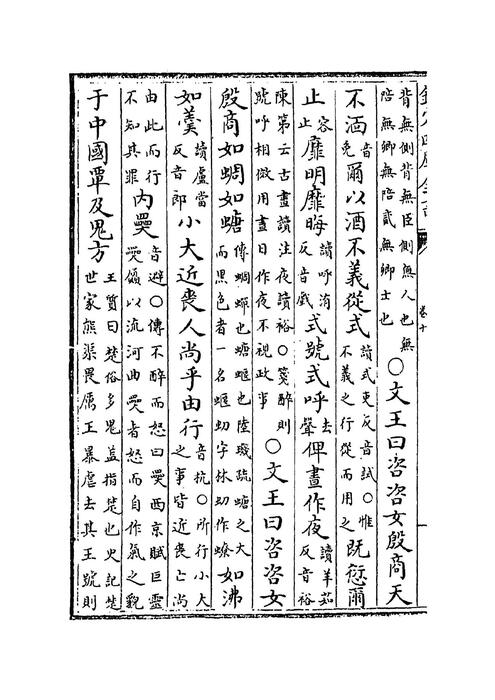 欽定四庫全書 卷十
背無側背無臣側無人也無陪無卿無陪貳無卿士也○文王曰咨咨女殷商天
不湎音免爾以酒不義從式讀式吏反音試○惟不義之行從而用之既愆爾
止容止靡明靡晦讀呼洧反音戲式號式呼去聲俾晝作夜讀羊茹反音裕
陳第云古晝讀注夜讀裕○箋醉則號呼相傚用晝日作夜不視政事○文王曰咨咨女
殷商如蜩如螗傳蜩蟬也螗蝘也陸璣疏螗之大而黑色者一名蝘虭字林虭作蟟如沸
如羹讀盧當反音郎小大近喪人尚乎由行音抗○所行小大之事皆近喪亡尚
由此而行不知其罪內奰音避○傳不醉而怒曰奰西京賦巨靈奰屭以流河曲奰者怒而自作氣之貌
于中國覃及鬼方王質曰楚俗多鬼蓋指楚也史記楚世家熊渠畏厲王暴虐去其王號則